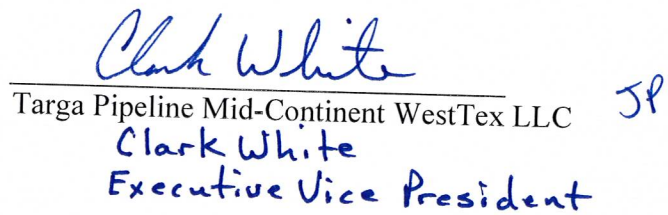 Clark White
Targa Pipeline Mid-Continent WestTex LLC JP
Clark White
Executive Vice President